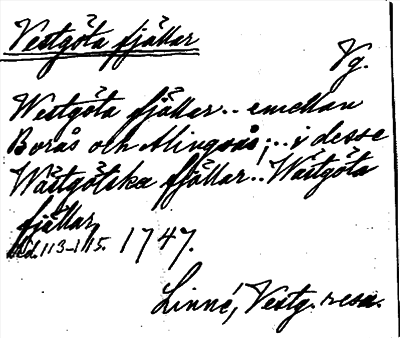 Vestgöta fjällar
Vg.
Westgöta fjällar.. emellan
Borås och Alingsås; .. i desse
Wästgötska fjällar.. Wästgöta
fjällar
sid. 113-115. 1747.
Linné, Vestg. resa.